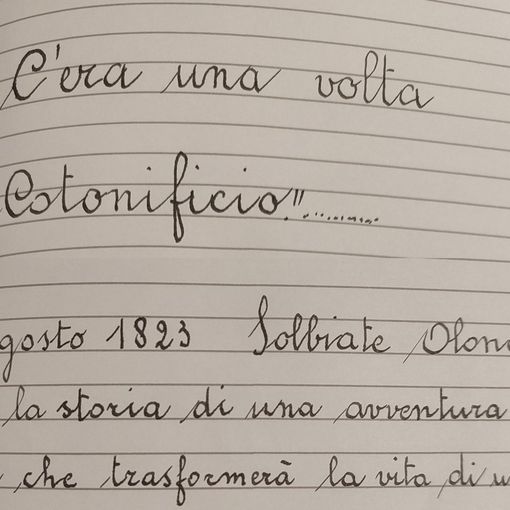 C'era una volta
Cotonificio!!............
gosto 1823 Solbiate Olon
la storia di una avventura
che trasformerà la vita di u